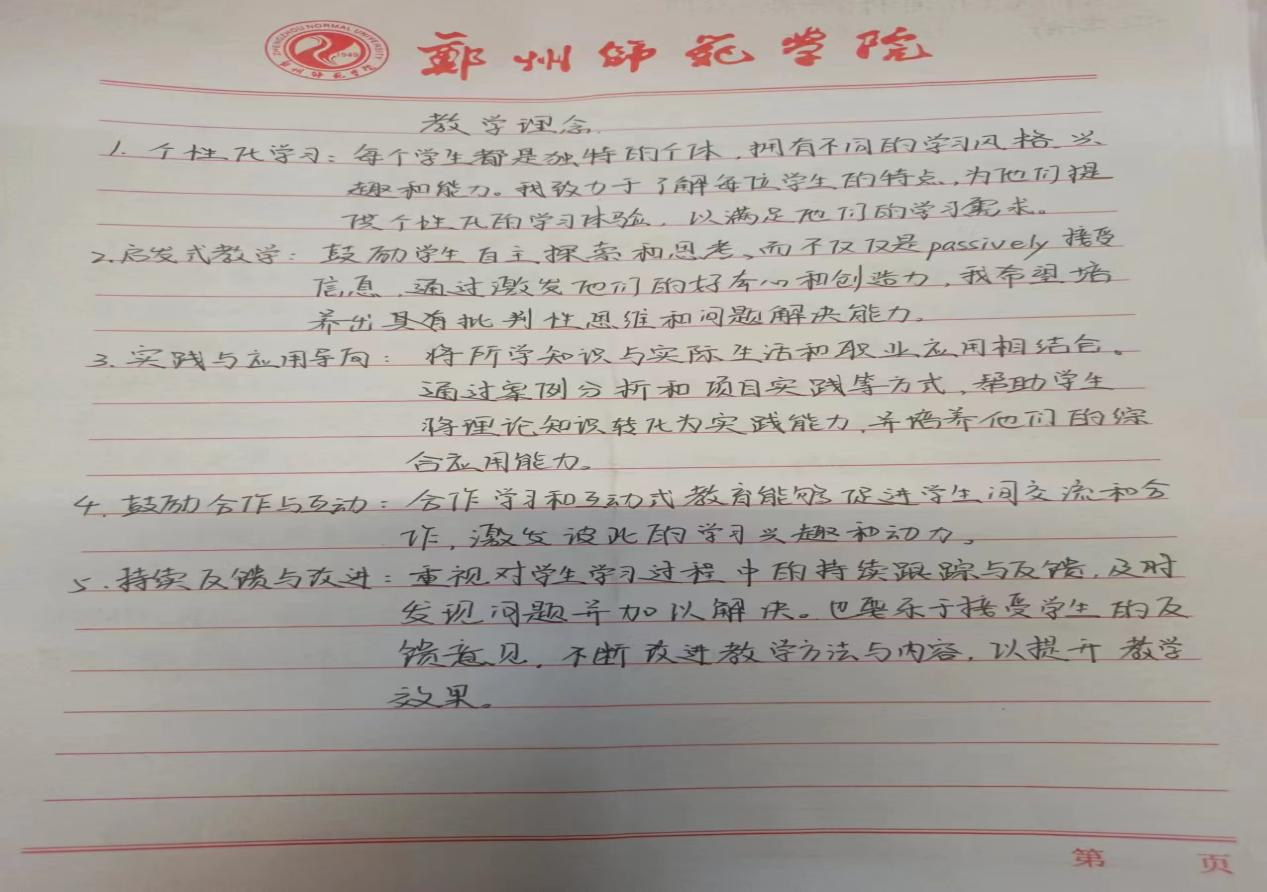 ZHENGZHOU NORMAL UNIVERSITY
1949
郑州师范学院
鄭州師範学院
教学理念
1. 个性化学习：每个学生都是独特的个体，拥有不同的学习风格、兴
趣和能力。我致力于了解每位学生的特点，为他们提
供个性化的学习体验，以满足他们的学习需求。
2. 启发式教学：鼓励学生自主探索和思考、而不仅仅是passively接受
信息，通过激发他们的好奇心和创造力，我希望培
养出具有批判性思维和问题解决能力。
3. 实践与应用导向：将所学知识与实际生活和职业应用相结合。
通过案例分析和项目实践等方式，帮助学生
将理论知识转化为实践能力，并培养他们的综
合应用能力。
4. 鼓励合作与互动：合作学习和互动式教育能够促进学生间交流和合
作，激发彼此的学习兴趣和动力。
5. 持续反馈与改进：重视对学生学习过程中的持续跟踪与反馈，及时
发现问题并加以解决。也要乐于接受学生的反
馈意见，不断改进教学方法与内容，以提升教学
效果。
第 页